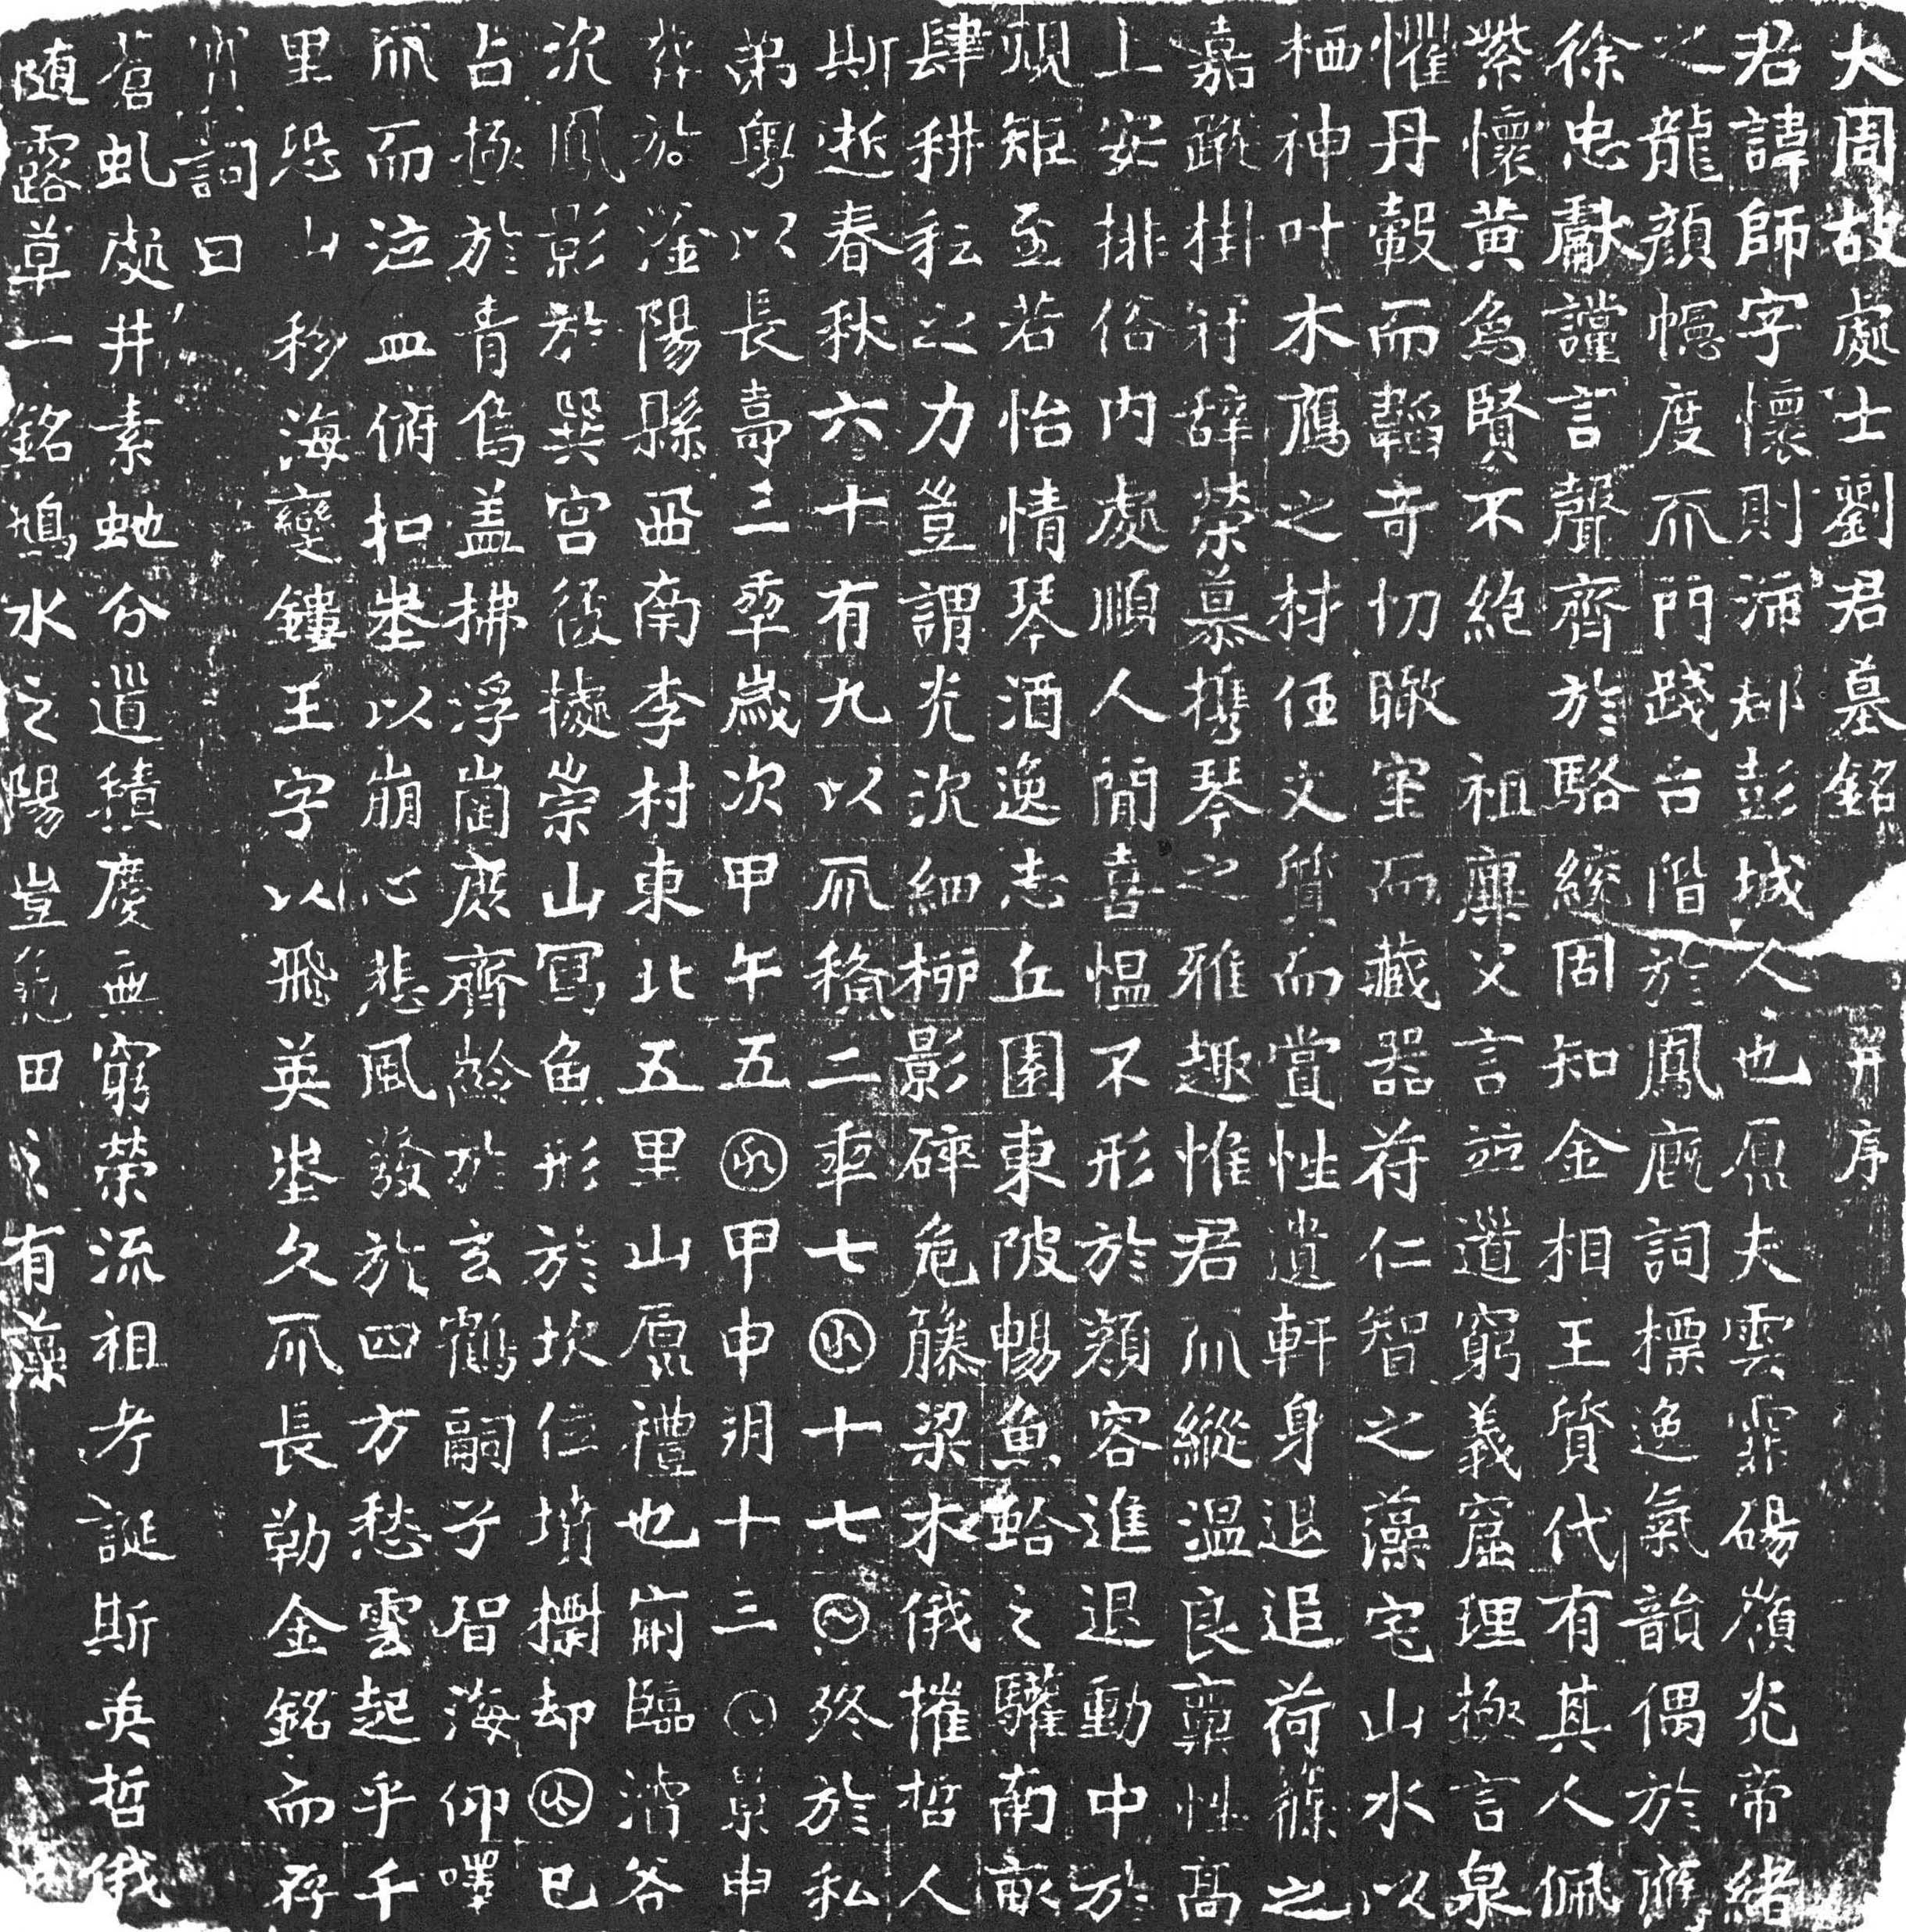 大周故處士劉君墓銘 并序
君諱師字懷則沛郡彭城人也原夫雲霏碭嶺光帝緒
之龍顏幰度而門踐台階於鳳扆詞標逸氣韻偶於應
徐忠獻謹言聲齊於駱統固知金相玉質代有其人佩
紫懷黃為賢不絕 祖廓父言並道窮義窟理極言泉
懼丹轂而韜奇忉瞰室而藏器苻仁智之藻宅山水以
栖神叶木鴈之材任文質而賞性遺軒身退追荷蓧之
嘉蹤掛冠辭榮慕攜琴之雅趣惟君𠀑縱溫良稟性高
上安排俗內處順人間喜慍不形於顏容進退動中於
規矩至若怡情琴酒逸志丘園東陂暢魚蛤之驩南畝
肆耕耘之力豈謂光沉細柳影碎危藤梁木俄摧哲人
斯逝春秋六十有九以𠀑稔二𠡦七囝十七〇終於私
第粵以長壽三𠡦歲次甲午五囝甲申朔十三〇景申
葬於滏陽縣西南李村東北五里山原禮也前臨滏谷
沉鳳影於巽宮後據崇山寫魚形於坎位墳攔却囝已
占極於青烏盖拂浮崗庶齊齡於玄鶴嗣子智海仰嘩
𠀑而泣血俯扣埊以崩心悲風發於四方愁雲起乎千
里恐山移海變鏤玉字以飛英埊久𠀑長勒金銘而存
實詞曰
蒼虬處井素虵分道積慶無窮榮流祖考誕斯英哲俄
随露草一銘鴆水之陽豈藍田之有藻